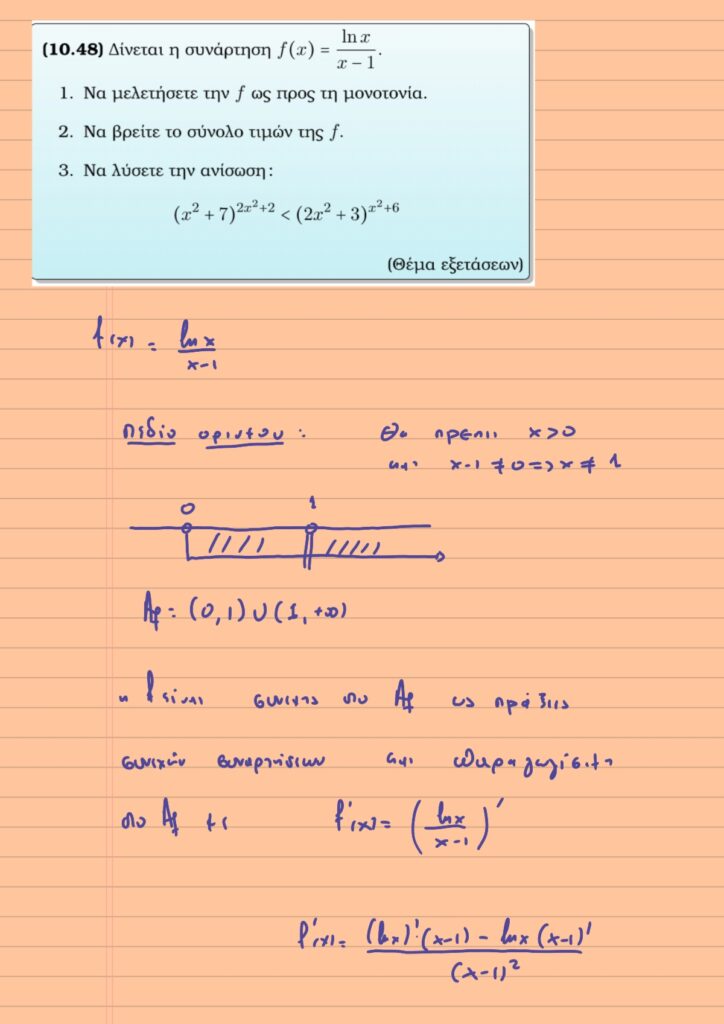 (10.48) Δίνεται η συνάρτηση f(x) = ln x / x − 1.
1. Να μελετήσετε την f ως προς τη μονοτονία.
2. Να βρείτε το σύνολο τιμών της f.
3. Να λύσετε την ανίσωση:
(x² + 7)^{2x²+2} < (2x² + 3)^{x²+6}
(Θέμα εξετάσεων)
f(x) = ln x / x-1
πεδίο ορισμού: θα πρέπει x>0
και x-1 ≠ 0 => x ≠ 1
0 1
A_f = (0,1) ∪ (1,+∞)
η f είναι συνεχής στο A_f ως πράξεις
συνεχών συναρτήσεων και παραγωγίσιμη
στο A_f με f'(x) = (ln x / x-1)'
f'(x) = (ln x)'·(x-1) - ln x (x-1)' / (x-1)²